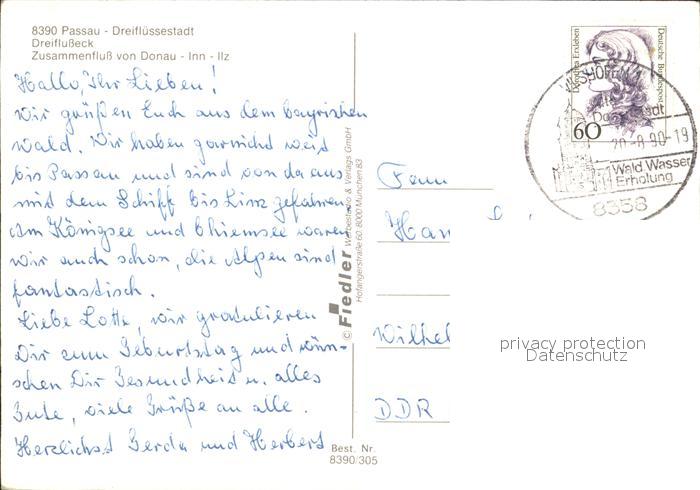 8390 Passau - Dreiflüssestadt
Dreiflußeck
Zusammenfluß von Donau - Inn - Ilz
Hallo, Ihr Lieben!
Wir grüßen Euch aus dem bayrischen
Wald. Wir haben garnicht weit
bis Passau und sind von da aus
mit dem Schiff bis Linz gefahren
Am Königsee und Chiemsee waren
wir auch schon, die Alpen sind
fantastisch.
Liebe Lotte, wir gratulieren
Dir zum Geburtstag und wün-
schen Dir Gesundheit u. alles
Gute, viele Grüße an alle.
Herzlichst Gerda und Herbert
© Fiedler Werbestudio & Verlags GmbH
Hofangerstraße 60 · 8000 München 83
Best. Nr.
8390/305
Dorothea Erxleben
Deutsche Bundespost
60
20-8.90-19
Wald Wasser
Erholung
8358
Fam
Han
Wilhel
DDR
privacy protection
Datenschutz